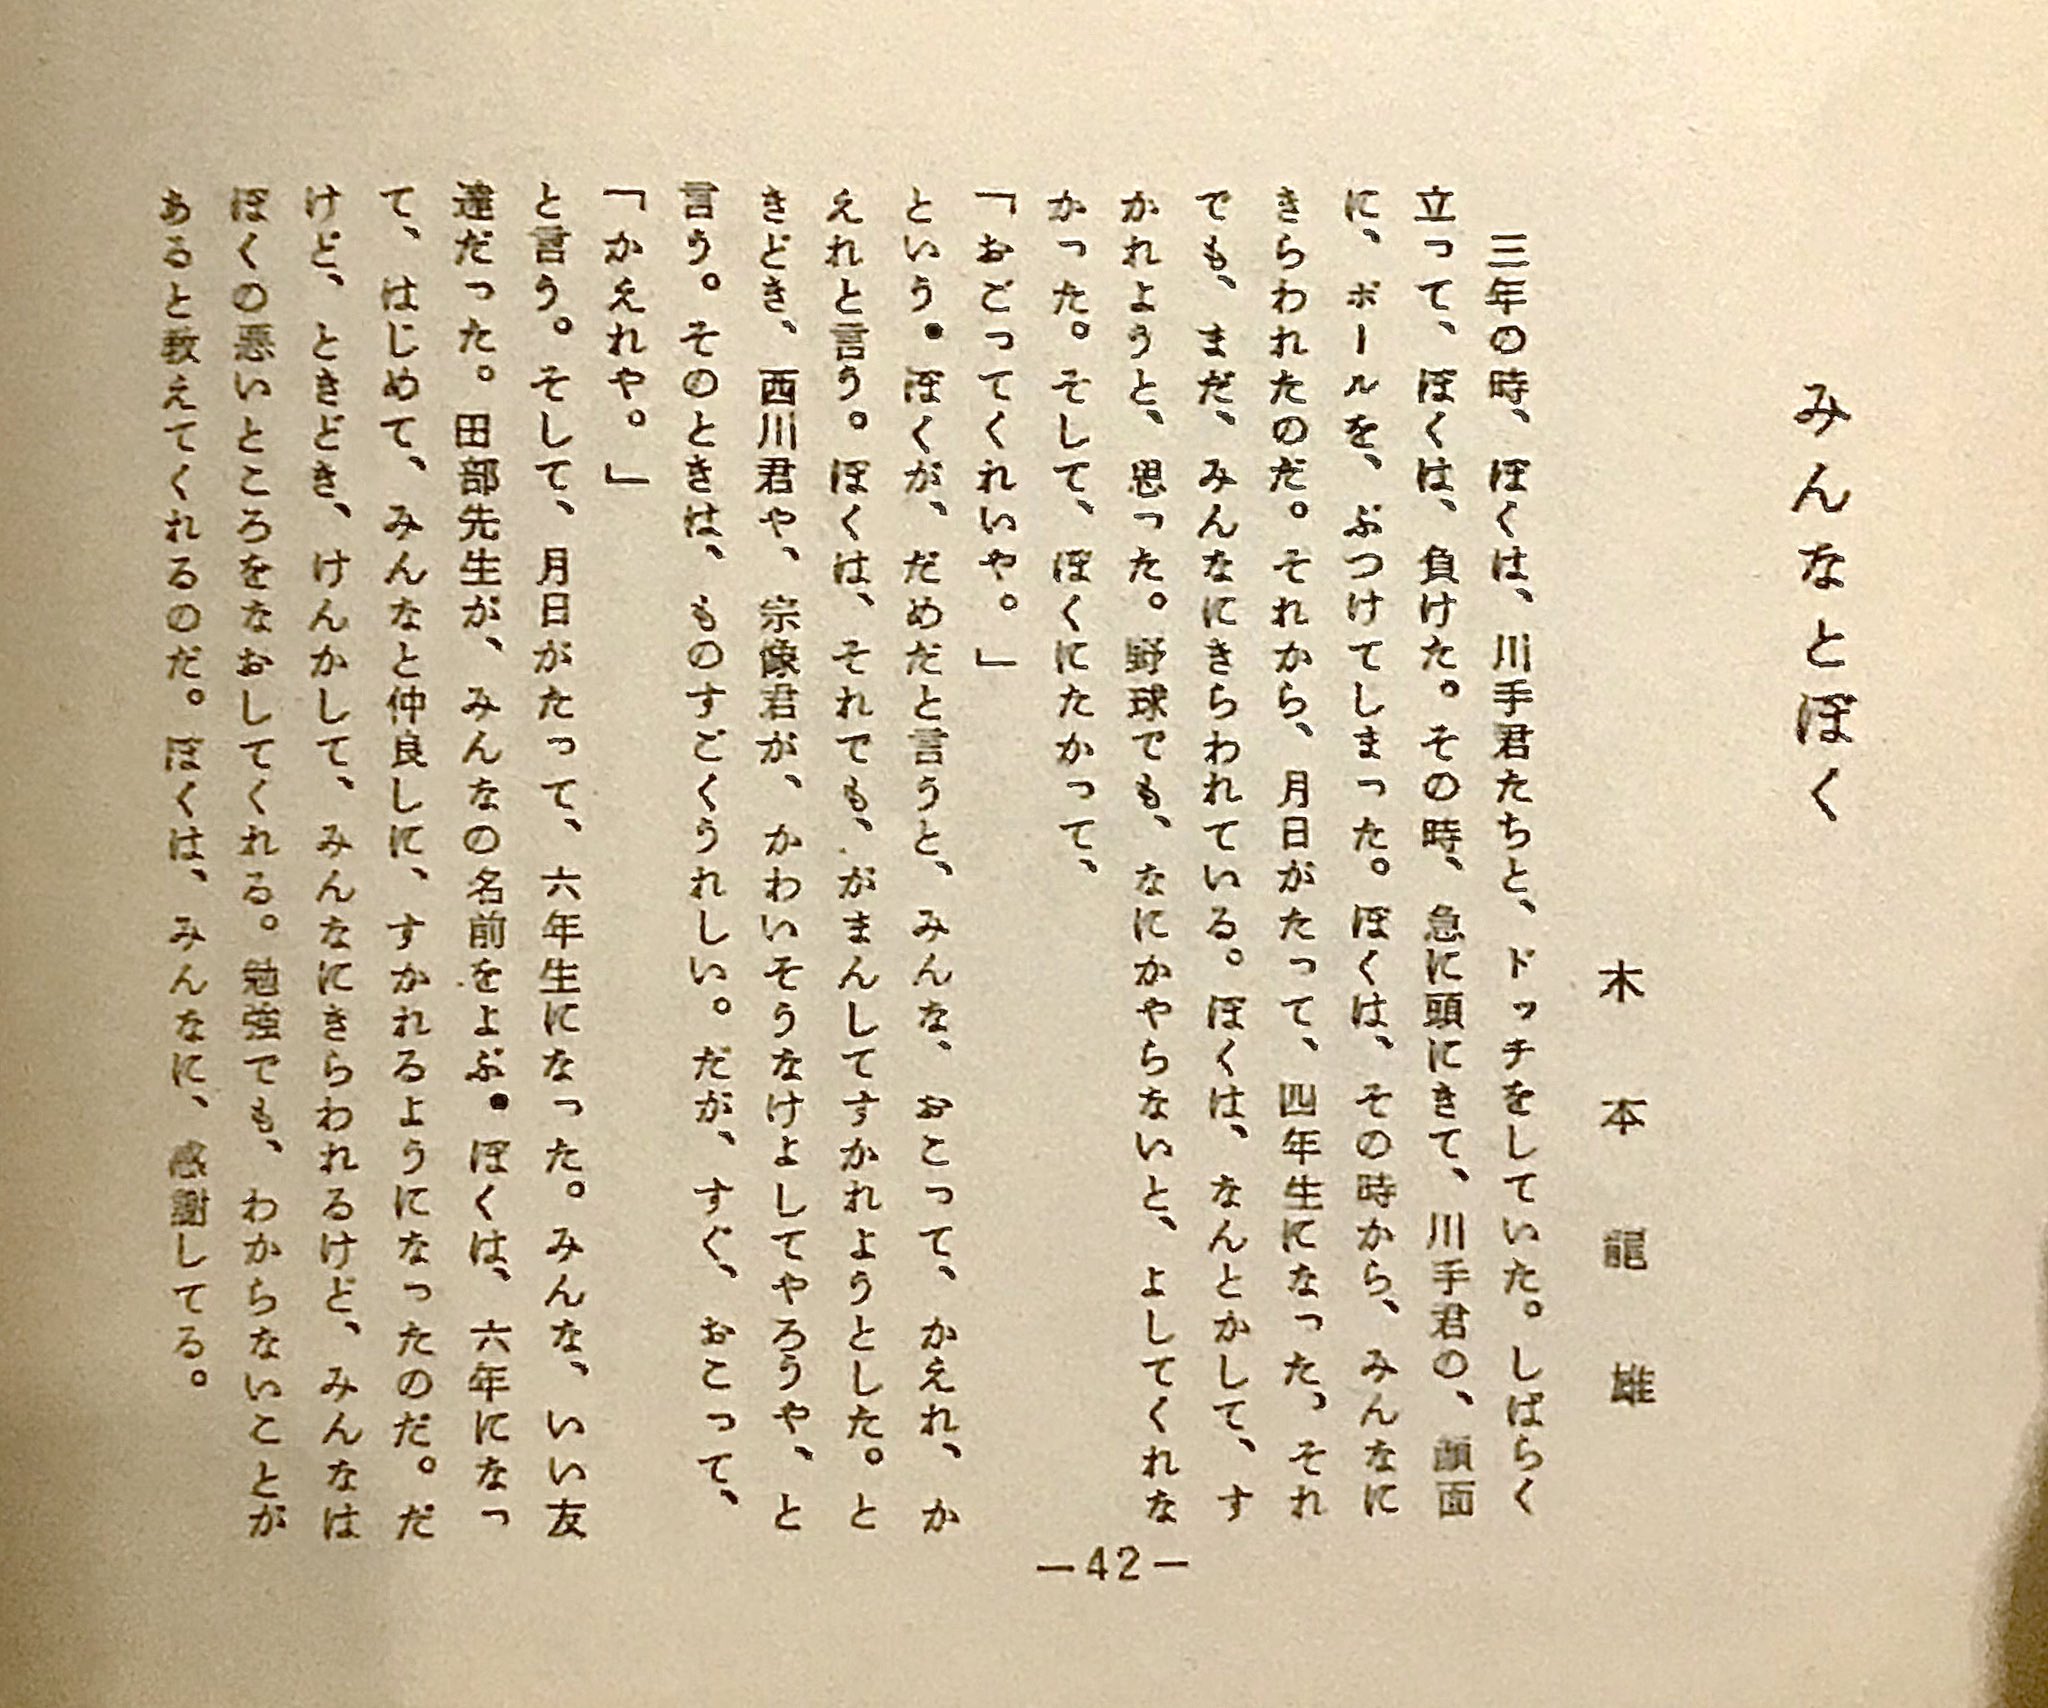 みんなとぼく
木本龍雄
三年の時、ぼくは、川手君たちと、ドッチをしていた。しばらく
立って、ぼくは、負けた。その時、急に頭にきて、川手君の、顔面
に、ボールを、ぶつけてしまった。ぼくは、その時から、みんなに
きらわれたのだ。それから、月日がたって、四年生になった。それ
でも、まだ、みんなにきらわれている。ぼくは、なんとかして、す
かれようと、思った。野球でも、なにかやらないと、よしてくれな
かった。そして、ぼくにたかって、
「おごってくれいや。」
という。ぼくが、だめだと言うと、みんな、おこって、かえれ、か
えれと言う。ぼくは、それでも、がまんしてすかれようとした。と
きどき、西川君や、宗像君が、かわいそうなけよしてやろうや、と
言う。そのときは、ものすごくうれしい。だが、すぐ、おこって、
「かえれや。」
と言う。そして、月日がたって、六年生になった。みんな、いい友
達だった。田部先生が、みんなの名前をよぶ。ぼくは、六年になっ
て、はじめて、みんなと仲良しに、すかれるようになったのだ。だ
けど、ときどき、けんかして、みんなにきらわれるけど、みんなは
ぼくの悪いところをなおしてくれる。勉強でも、わからないことが
あると教えてくれるのだ。ぼくは、みんなに、感謝してる。
－42－